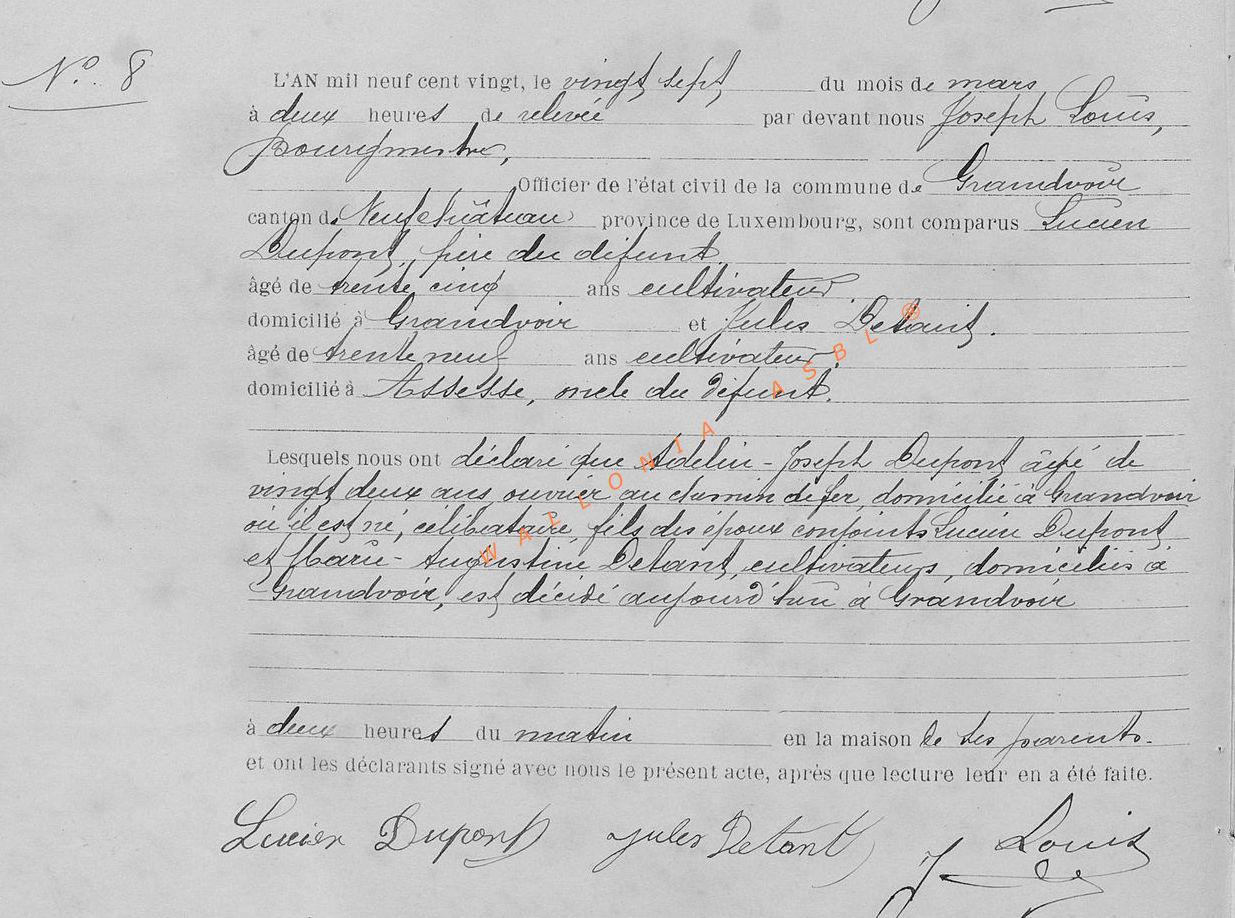 N° 8
L'AN mil neuf cent vingt, le vingt sept du mois de mars
à deux heures de relevée par devant nous Joseph Louis,
Bourgmestre,
Officier de l'état civil de la commune de Grandvoir
canton de Neufchâteau province de Luxembourg, sont comparus Lucien
Dupont, père du défunt
âgé de trente cinq ans cultivateur
domicilié à Grandvoir et Jules Detant.
âgé de trente neuf ans cultivateur
domicilié à Assesse, oncle du défunt.
Lesquels nous ont déclaré que Adelin-Joseph Dupont âgé de
vingt deux ans ouvrier au chemin de fer, domicilié à Grandvoir
où il est né, célibataire, fils des époux conjoints Lucien Dupont
et Marie-Augustine Detant, cultivateurs, domiciliés à
Grandvoir, est décédé aujourd'hui à Grandvoir
à deux heures du matin en la maison de ses parents.
et ont les déclarants signé avec nous le présent acte, après que lecture leur en a été faite.
Lucien Dupont Jules Detant J Louis
WALLONIA ASBL ®